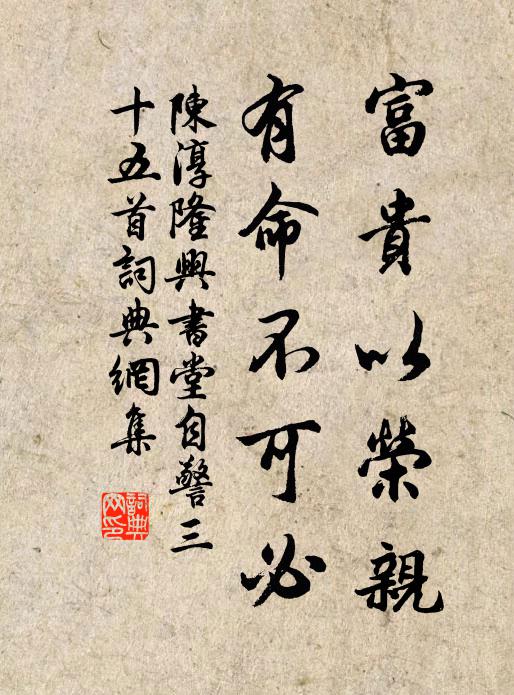 富貴以榮親
有命不可必
陳淳隆興書堂自警三
十五首詞典網集
詞典
网印